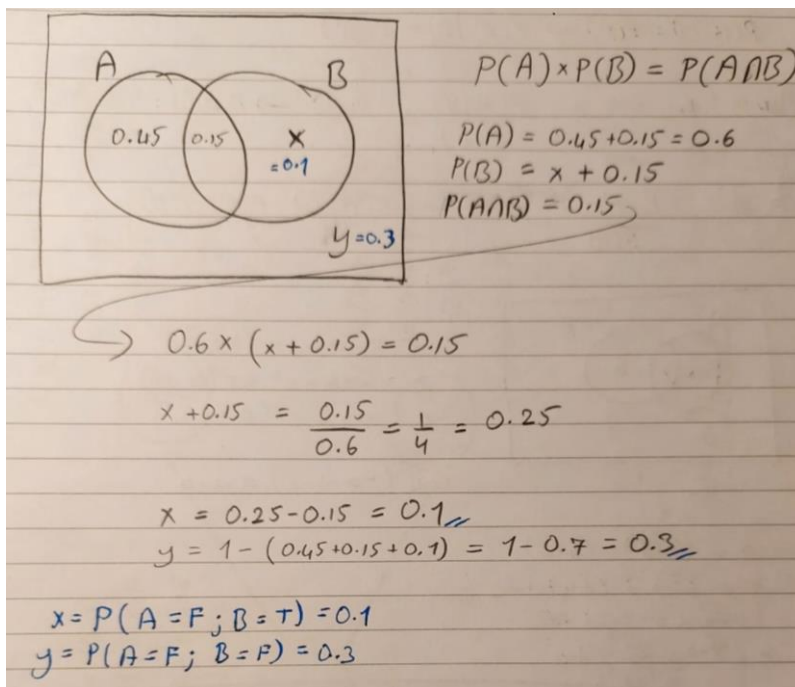 A B
0.45 0.15 x
=0.1
y=0.3
P(A)×P(B) = P(A∩B)
P(A) = 0.45+0.15 = 0.6
P(B) = x + 0.15
P(A∩B) = 0.15
0.6 × (x + 0.15) = 0.15
x + 0.15 = 0.15/0.6 = 1/4 = 0.25
x = 0.25-0.15 = 0.1
y = 1 - (0.45+0.15+0.1) = 1 - 0.7 = 0.3
x = P(A=F; B=T) = 0.1
y = P(A=F; B=F) = 0.3